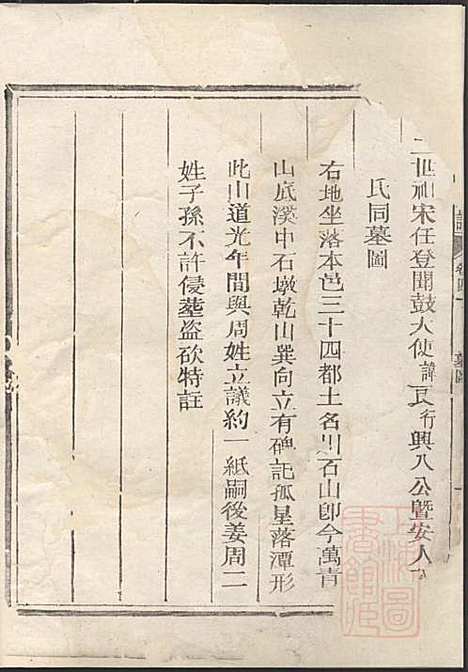 二世祖宋任登聞鼓大使諱良行興八公暨安人
氏同墓圖
右地坐落本邑三十四都土名引石山卽今萬青
山底溪中石墩乾山巽向立有碑記孤星落潭形
此山道光年間與周姓立議約一紙嗣後姜周二
姓子孫不許侵塟盜砍特註
卷四 墓圖